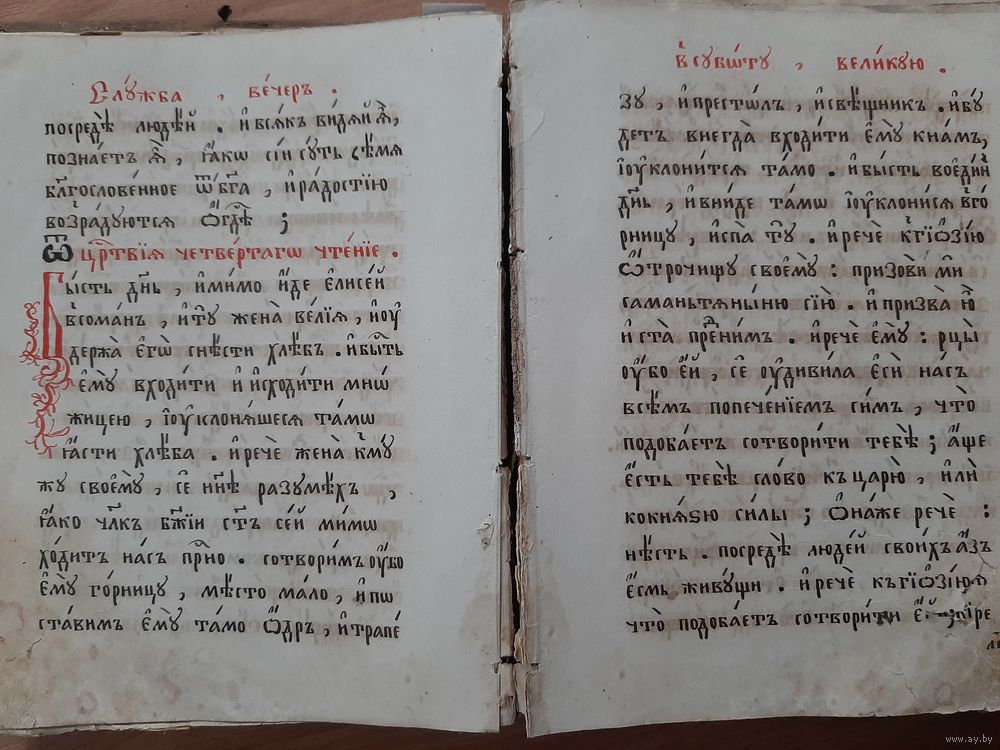 Слꙋ́жба , ве́черъ .
посредѣ̀ людѣ́й . и҆всѧ́къ ви́дѧй ѧ҆̀,
позна́етъ ѧ҆̀ , ꙗ҆́кѡ сі́и сꙋ́ть сѣ́мѧ
блгⷭ҇ослове́нное ѿ бг҃а , и҆ра́достїю
возра́дꙋютсѧ ѡ҆гдⷭ҇ѣ ;
Ѿ црⷭ҇твїѧ четве́ртагѡ чте́нїе .
Бы́сть дн҃ь , и҆ми́мо и҆́де е҆лисе́й
всома́нъ , и҆тꙋ̀ жена̀ ве́лїѧ , и҆оу҆
держа̀ е҆гѡ̀ снѣ́сти хлѣ́бъ . и҆бы́ть
е҆мꙋ̀ входи́ти и҆ и҆сходи́ти мно́ѡ
жицею , і҆оу҆клонѧ́шесѧ та́мѡ
ꙗ҆́сти хлѣ́ба . и҆речѐ жена̀ кмꙋ́
жꙋ своемꙋ̀ , се̑ нн҃ѣ разꙋмѣ́хъ ,
ꙗ҆́ко чл҃къ бж҃їи ст҃ъ се́й ми́мѡ
хо́дитъ на́съ прⷭ҇но . сотвори́мъ оу҆́бо
е҆мꙋ̀ го́рницꙋ , мѣ́сто ма́ло , и҆пѡ
ста́вимъ е҆мꙋ̀ та́мо ѻ҆́дръ , и҆трапе́
В сꙋбѡ́тꙋ , вели́кꙋю .
зꙋ , и҆престо́лъ , и҆свѣ́щникъ . и҆бꙋ́
детъ внегда̀ входи́ти е҆мꙋ̀ кна́мъ,
і҆оу҆клони́тсѧ та́мо . и҆бы́сть вое҆ди́н
дн҃ь , и҆вни́де та́мѡ і҆оу҆клони́сѧ вго́
рницꙋ , и҆спа̀ тꙋ̀ . и҆речѐ кгїѻзі́ю
ѻ҆́трочищꙋ своемꙋ̀ : призови́ ми
саманьтѧны́ню сїю̀ . и҆призва̀ ю҆̀
и҆ ста̀ преⷣни́мъ . и҆речѐ е҆мꙋ̀ : рцы̀
оу҆́бо е҆́й , се̑ оу҆диви́ла е҆сѝ на́съ
всѣ́мъ попече́нїемъ си́мъ , что̀
подоба́етъ сотвори́ти тебѣ̀ ; а҆́ще
е҆́сть тебѣ̀ сло́во къ царю̀ , и҆лѝ
кокнѧ́ѕю си́лы ; ѻ҆на́же речѐ :
нѣ́сть . посредѣ̀ люде́й свои́хъ а҆́зъ
е҆́смь живꙋ́щи . и҆речѐ къгїѻзі́юѧ
что̀ подоба́етъ сотвори́ти
www.ay.by